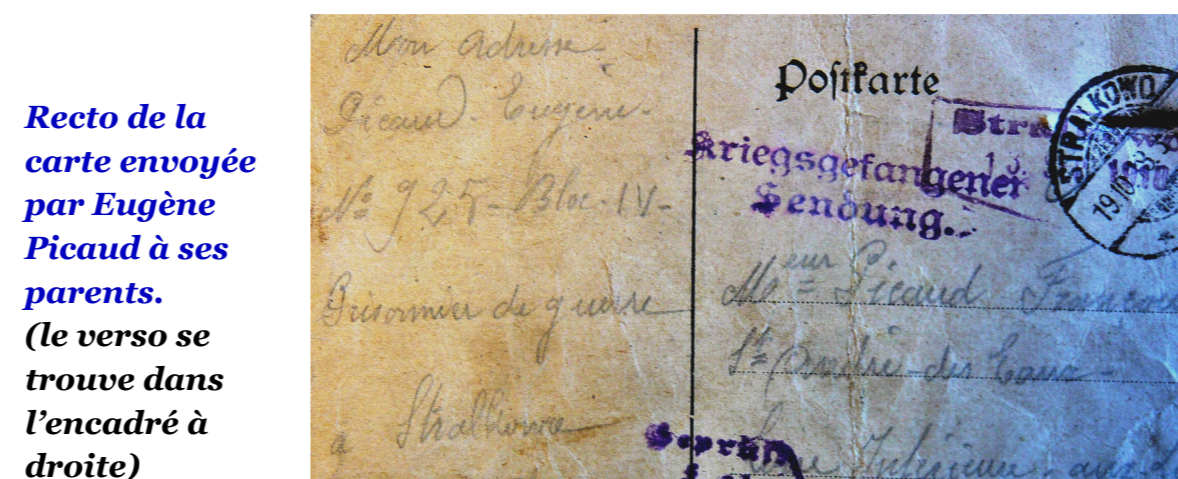 Recto de la
carte envoyée
par Eugène
Picaud à ses
parents.
(le verso se
trouve dans
l'encadré à
droite)
Mon adresse
Picaud. Eugène.
N° 925-Bloc-IV-
Prisonnier de guerre
à Stralkowo
Postkarte
Kriegsgefangenen
Sendung.
STRALKOWO
19.10
Mo eur Picaud
St André-des Eaux-
Loire Inférieure
Geprüft